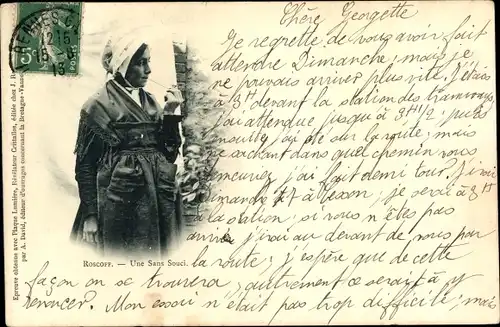 Chère Georgette
Je regrette de vous avoir fait
attendre Dimanche; mais je
ne pouvais arriver plus vite. J'étais
à 3h devant la station des tramways
j'ai attendue jusqu'à 3h 1/2; puis
j'ai été sur la route; mais
ne sachant dans quel chemin vous
j'ai fait demi tour.
je serai à 3h
à la station; si vous n'êtes pas
arrivée j'irai au devant de vous par
la route; j'espère que de cette
façon on se trouvera, autrement ce serait à y
renoncer. Mon essai n'était pas trop difficile; mais
ROSCOFF. — Une Sans Souci.
Epreuve obtenue avec Plaque Lumière, Révélateur Cristallos, éditée chez J.
par A. David, éditeur d'ouvrages concernant la Bretagne
RENNES
12 15
13
5c
POSTES